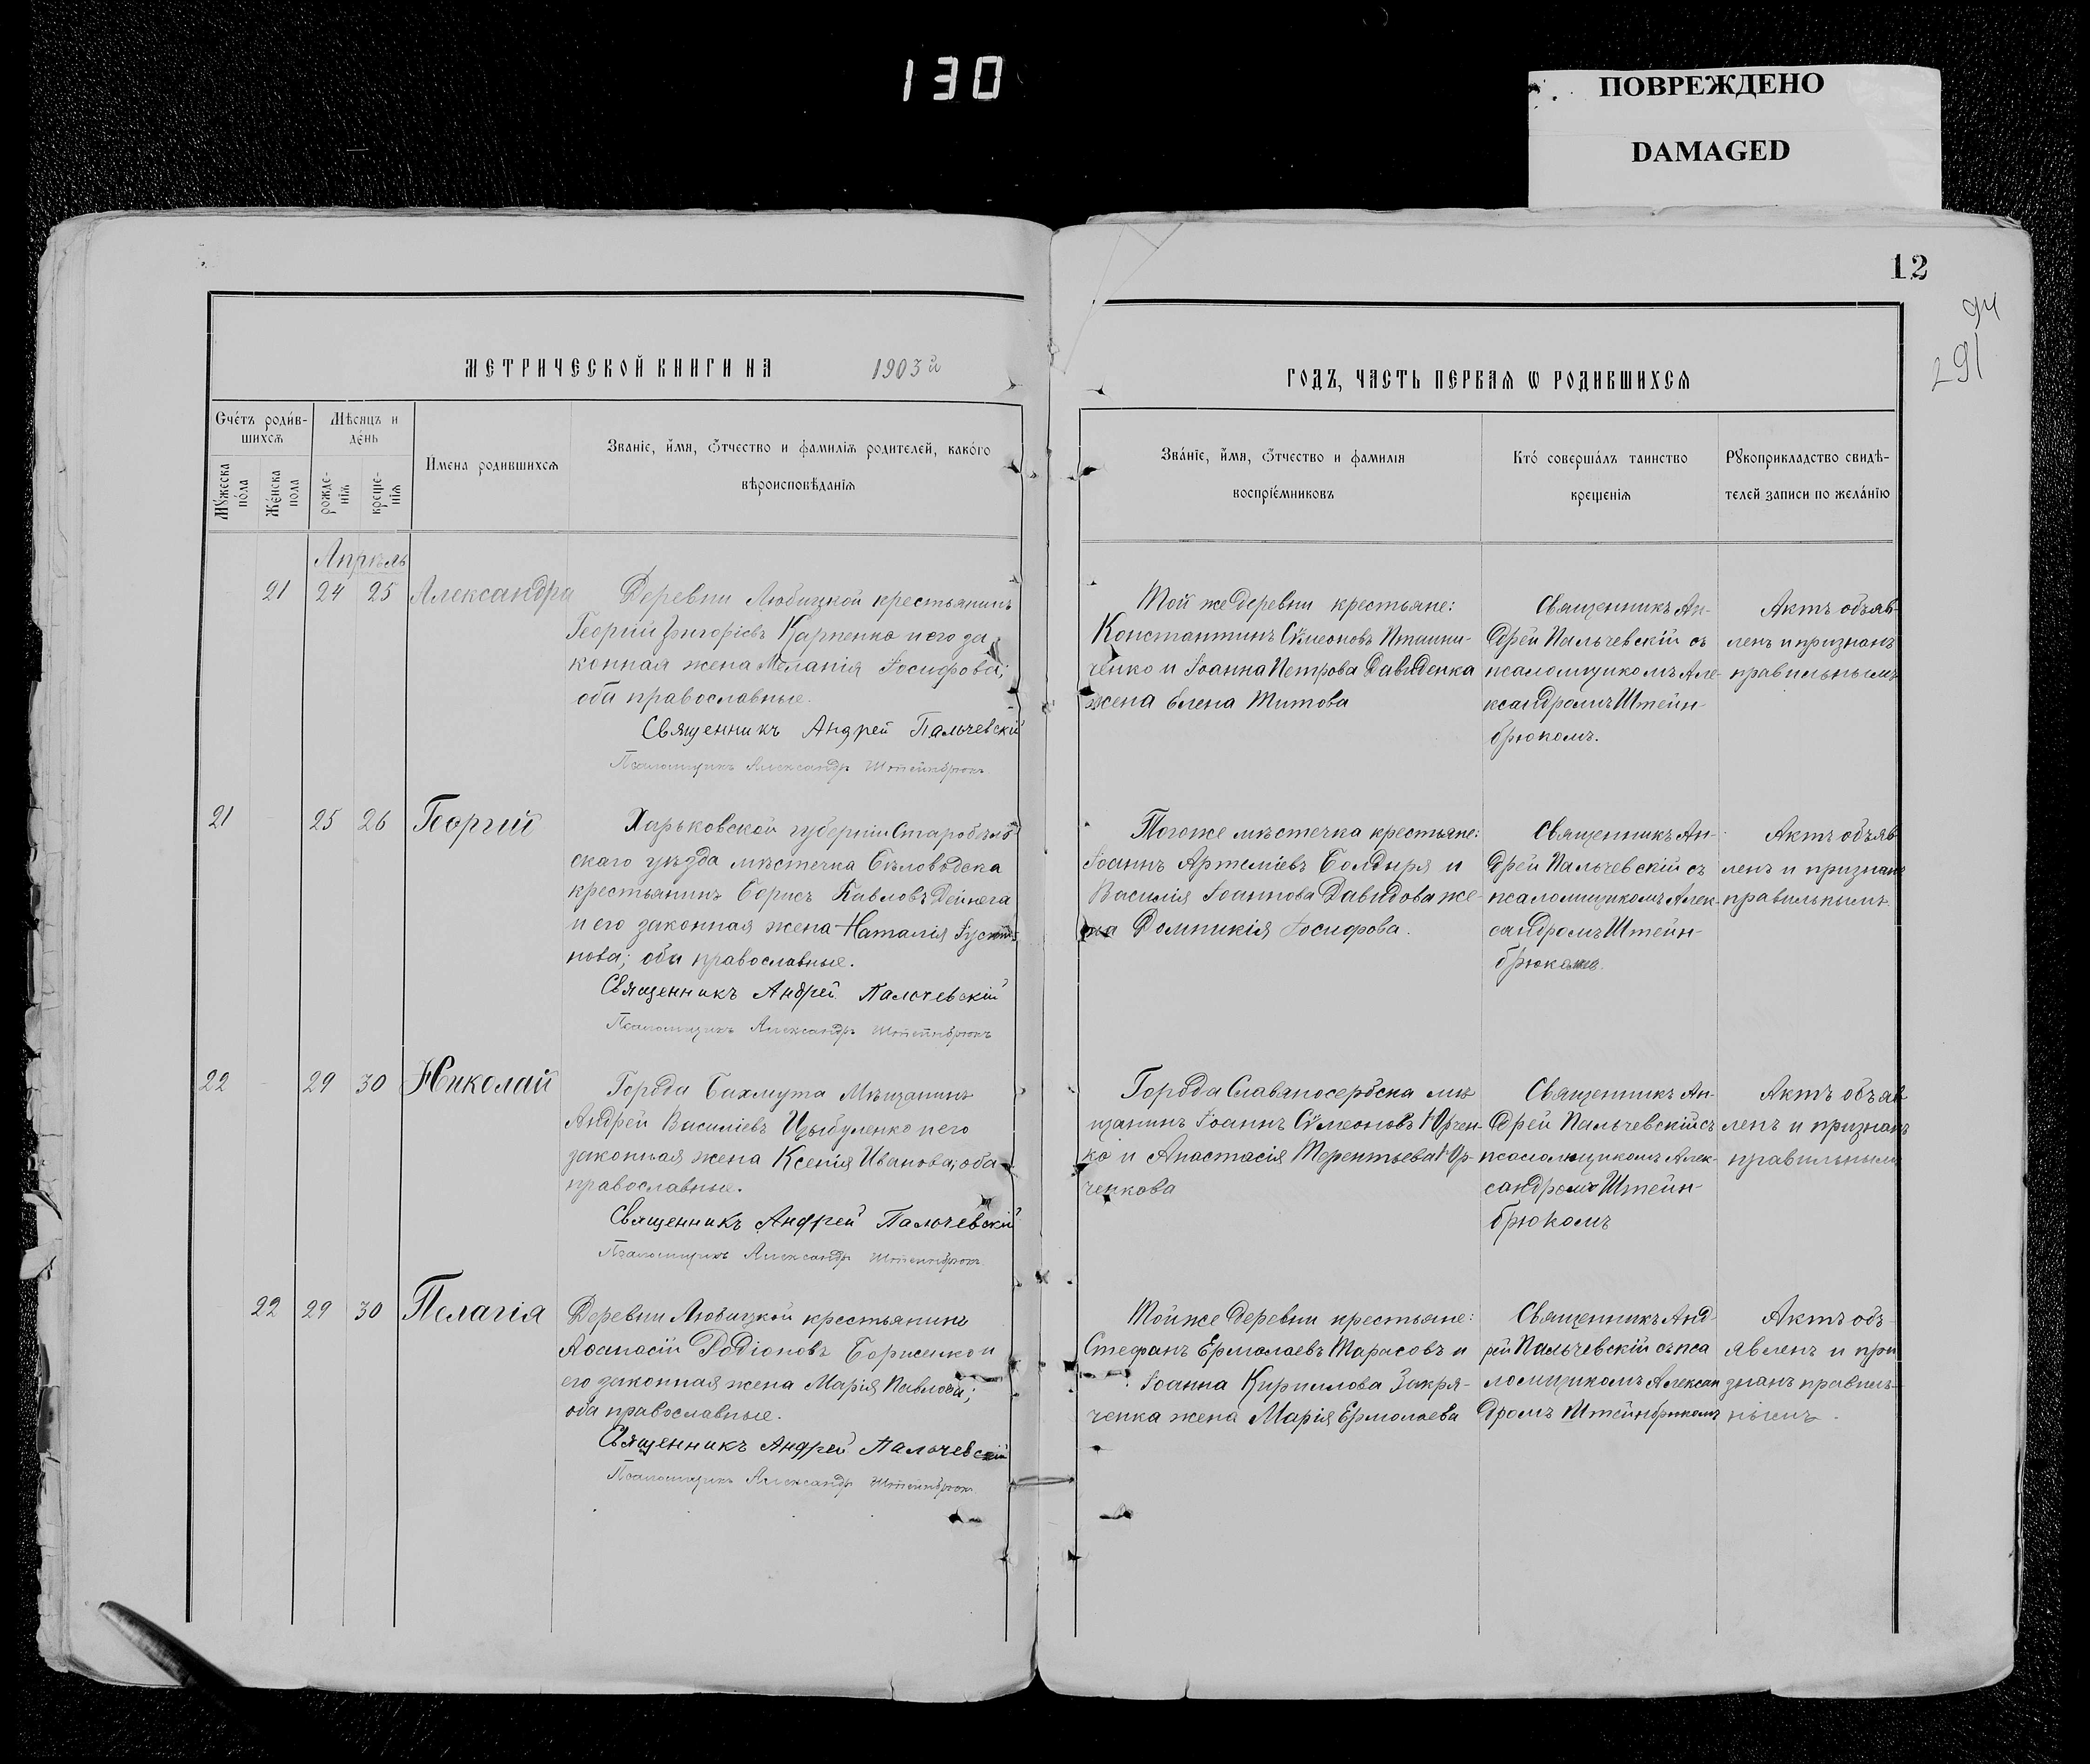 130
ПОВРЕЖДЕНО
DAMAGED
12
94
291
МЕТРИЧЕСКОЙ КНИГИ НА 1903й
ГОДЪ, ЧАСТЬ ПЕРВАѦ Ѡ РОДИВШИХСѦ
Счетъ родив-
шихсѧ
Мѣсяцъ и
день
Мужеска
пола
Женска
пола
рожде-
нїѧ
креще-
нїѧ
Имена родившихсѧ
Званїе, имя, ѿчество и фамилїѧ родителей, какого
вѣроисповѣданїѧ
Званїе, имя, ѿчество и фамилїя
воспрїемниковъ
Кто совершалъ таинство
крещенїѧ
Рукоприкладство свидѣ-
телей записи по желанїю
Апрѣль
21 24 25 Александра
Деревни Любицкой крестьянинъ
Георгій Григоріевъ Карпенко и его за
конная жена Меланія Іосифова;
оба православные.
Священникъ Андрей Пальчевскій
Псаломщикъ Александръ Штейнбрюкъ
Той же деревни крестьяне:
Константинъ Сѵмеоновъ Пташни-
ченко и Іоанна Петрова Давиденка
жена Елена Титова
Священникъ Ан-
дрей Пальчевскій съ
псаломщикомъ Але-
ксандромъ Штейн-
брюкомъ.
Актъ объяв-
ленъ и признанъ
правильнымъ
21 25 26 Георгій
Харьковской губерніи Старобѣль
скаго уѣзда мѣстечка Бѣловодска
крестьянинъ Борисъ Павловъ Дейнега
и его законная жена Наталія Іусти
нова; оба православные.
Священникъ Андрей Пальчевскій
Псаломщикъ Александръ Штейнбрюкъ
Того же мѣстечка крестьяне:
Іоаннъ Артеміевъ Болдыря и
Василія Іоаннова Давидова же-
на Домникія Іосифова.
Священникъ Ан-
дрей Пальчевскій съ
псаломщикомъ Алек-
сандромъ Штейн-
брюкомъ.
Актъ объяв
ленъ и признанъ
правильнымъ.
22 29 30 Николай
Города Бахмута Мѣщанинъ
Андрей Василіевъ Цыбуленко и его
законная жена Ксенія Иванова; оба
православные.
Священникъ Андрей Пальчевскій
Псаломщикъ Александръ Штейнбрюкъ
Города Славяносербска мѣ
щанинъ Іоаннъ Сѵмеоновъ Юрчен-
ко и Анастасія Терентьева Юр-
ченкова
Священникъ Ан-
дрей Пальчевскій съ
псаломщикомъ Алек-
сандромъ Штейн-
брюкомъ
Актъ объяв
ленъ и признанъ
правильнымъ
22 29 30 Пелагія
Деревни Любицкой крестьянинъ
Аѳанасій Родіоновъ Борисенко и
его законная жена Марія Павлова;
оба православные.
Священникъ Андрей Пальчевскій
Псаломщикъ Александръ Штейнбрюкъ
Той же деревни крестьяне:
Стефанъ Ермолаевъ Тарасовъ и
Іоанна Кириллова Закря-
ченка жена Марія Ермолаева
Священникъ Анд-
рей Пальчевскій съ пса
ломщикомъ Алексан
дромъ Штейнбрюкомъ
Актъ объ-
явленъ и при
знанъ правиль-
нымъ.